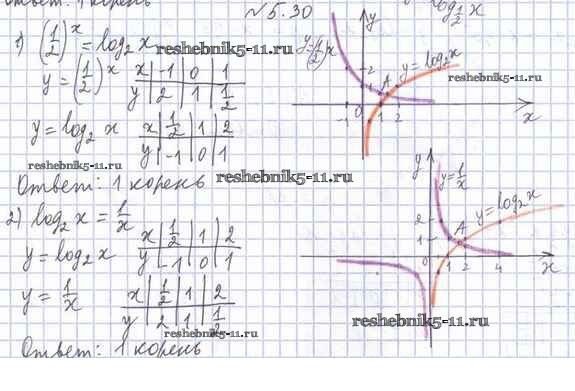 Ответ: 1 корень
№5.30
1) (1/2)^x = log₂x
y = (1/2)^x
x | -1 | 0 | 1
y | 2 | 1 | 1/2
y = log₂ x
x | 1/2 | 1 | 2
y | -1 | 0 | 1
Ответ: 1 корень
2) log₂x = 1/x
y = log₂x
x | 1/2 | 1 | 2
y | -1 | 0 | 1
y = 1/x
x | 1/2 | 1 | 2
y | 2 | 1 | 1/2
Ответ: 1 корень
y=(1/2)^x
y
y=log₂x
2
1
A
-1 0 1 2
x
y
y=1/x
y=log₂x
2
1
A
0 1 2 4
x
reshebnik5-11.ru
reshebnik5-11.ru
reshebnik5-11.ru
reshebnik5-11.ru
reshebnik5-11.ru
reshebnik5-11.ru